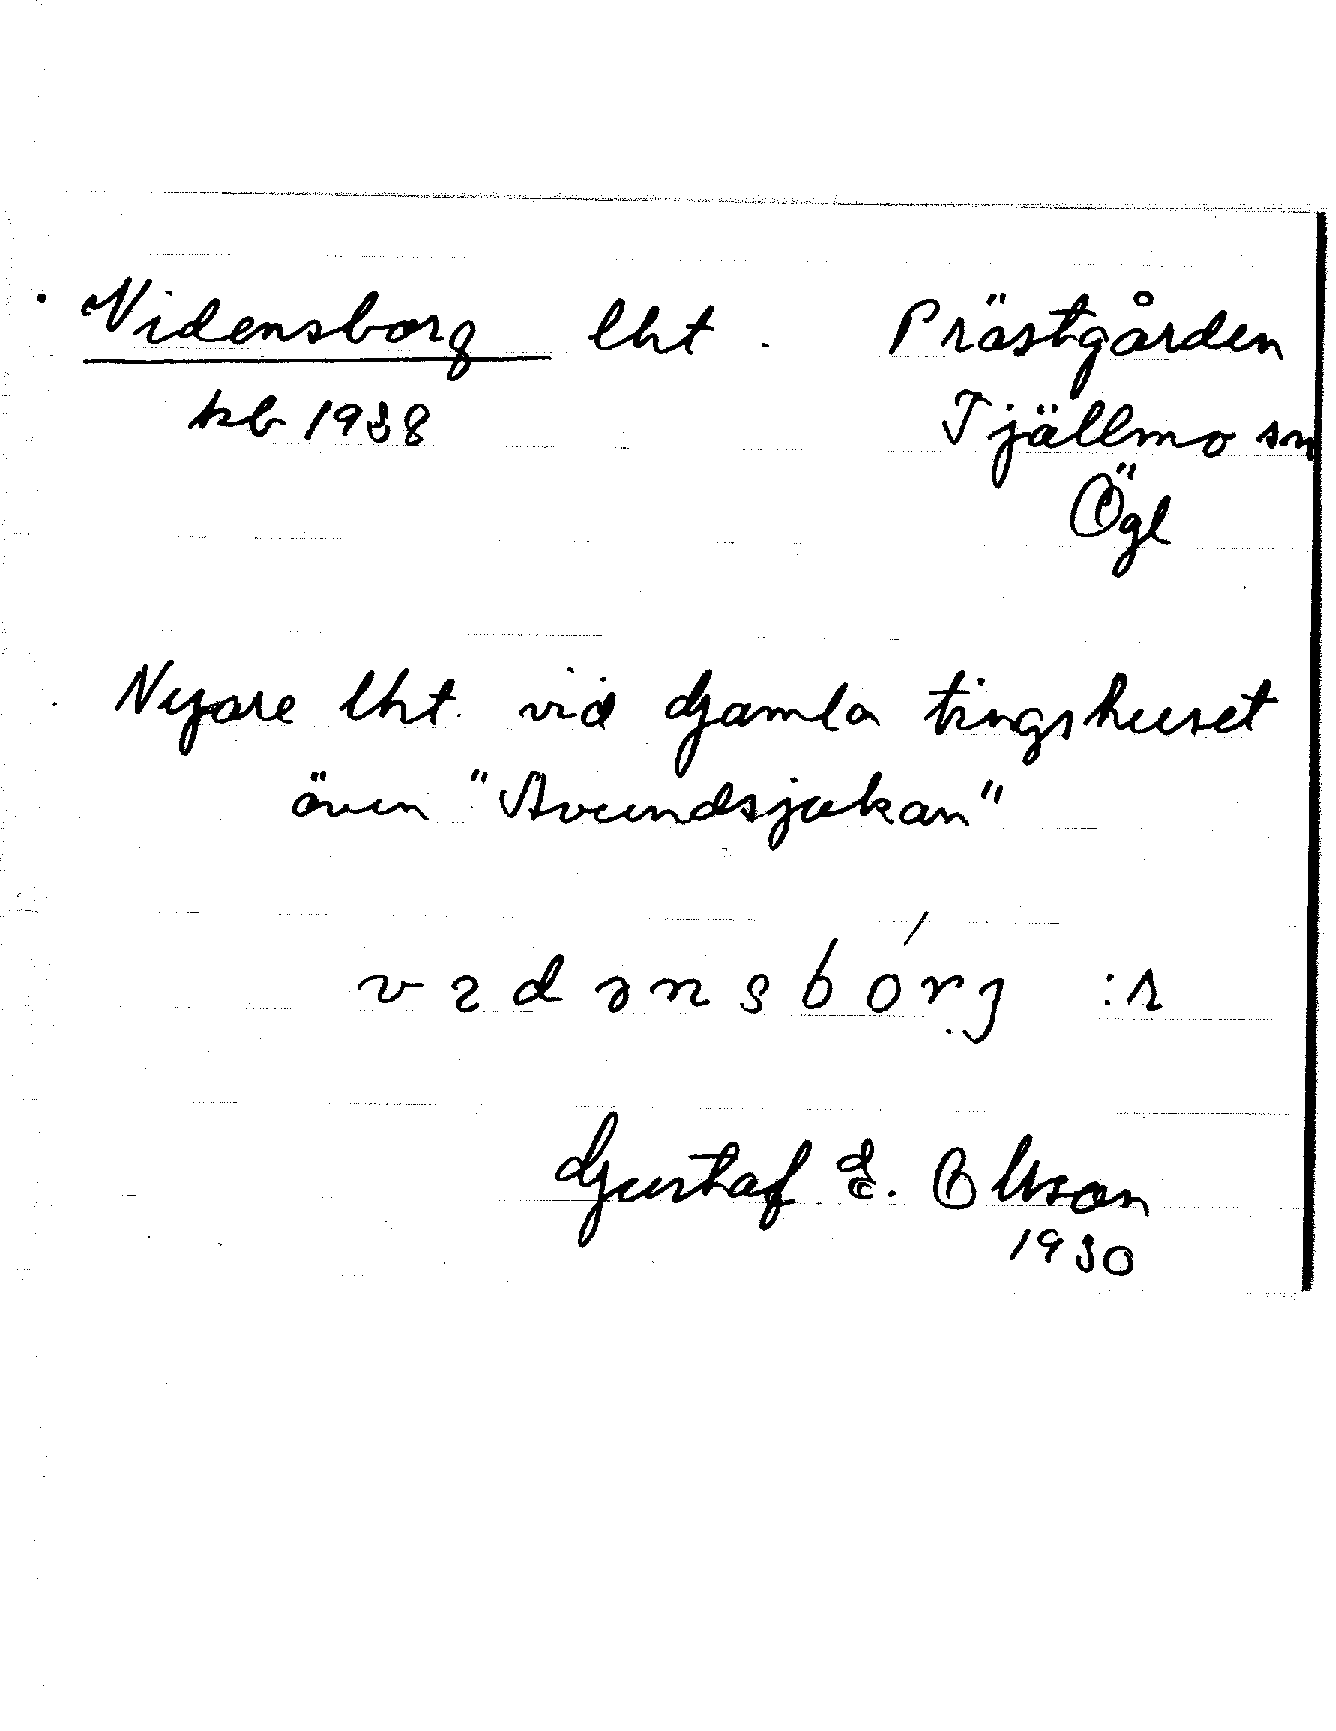 Vidensborg lht. Prästgården
kb 1938 Tjällmo sn
Ögl
Nyare lht. vid Gamla tingshuset
även "Avundsjukan"
vedənsbórj :s
Gustaf E. Olsson
1930